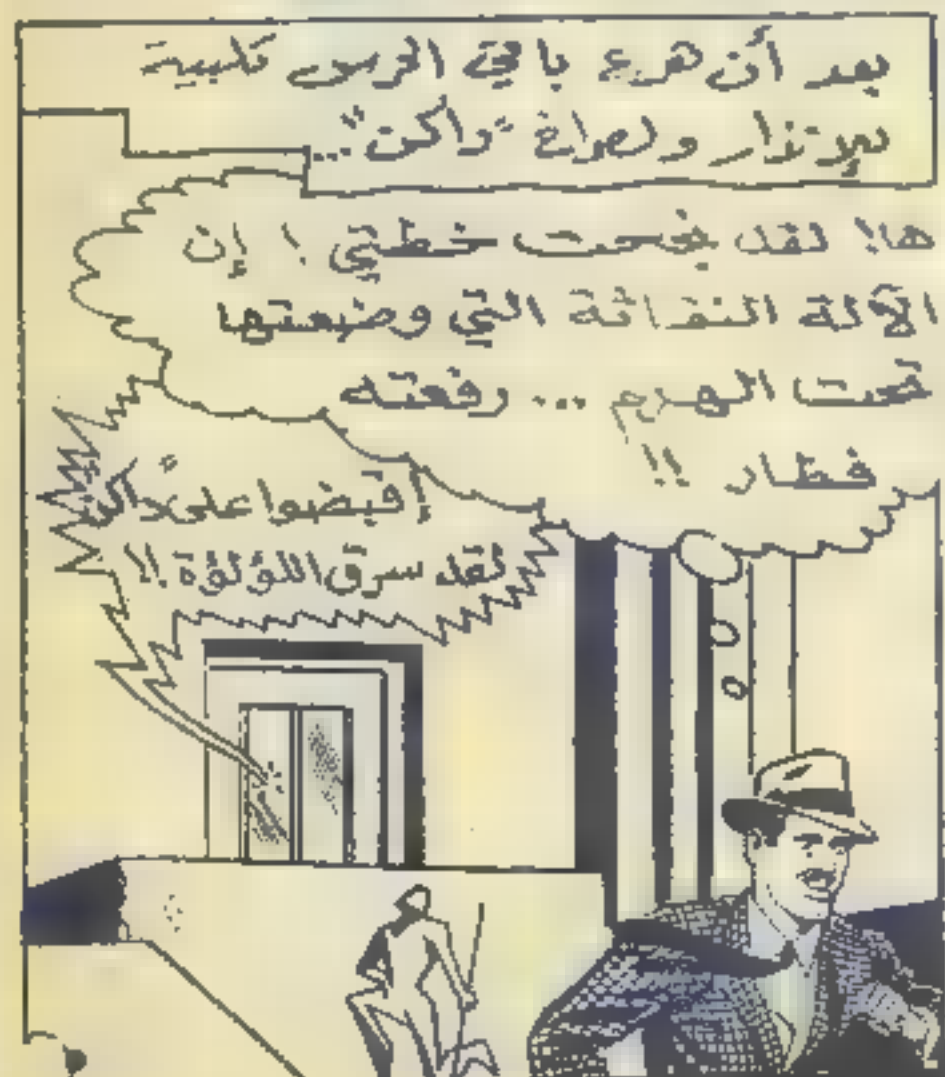 بعد أن هرع باقي الحرس تلبية
للإنذار ولصراخ "داكن"...
ها! لقد نجحت خطتي! إن
الآلة النفاثة التي وضعتها
تحت الهرم ... رفعته
فطار !!
إقبضوا على "داكن"
لقد سرق اللؤلؤة !!